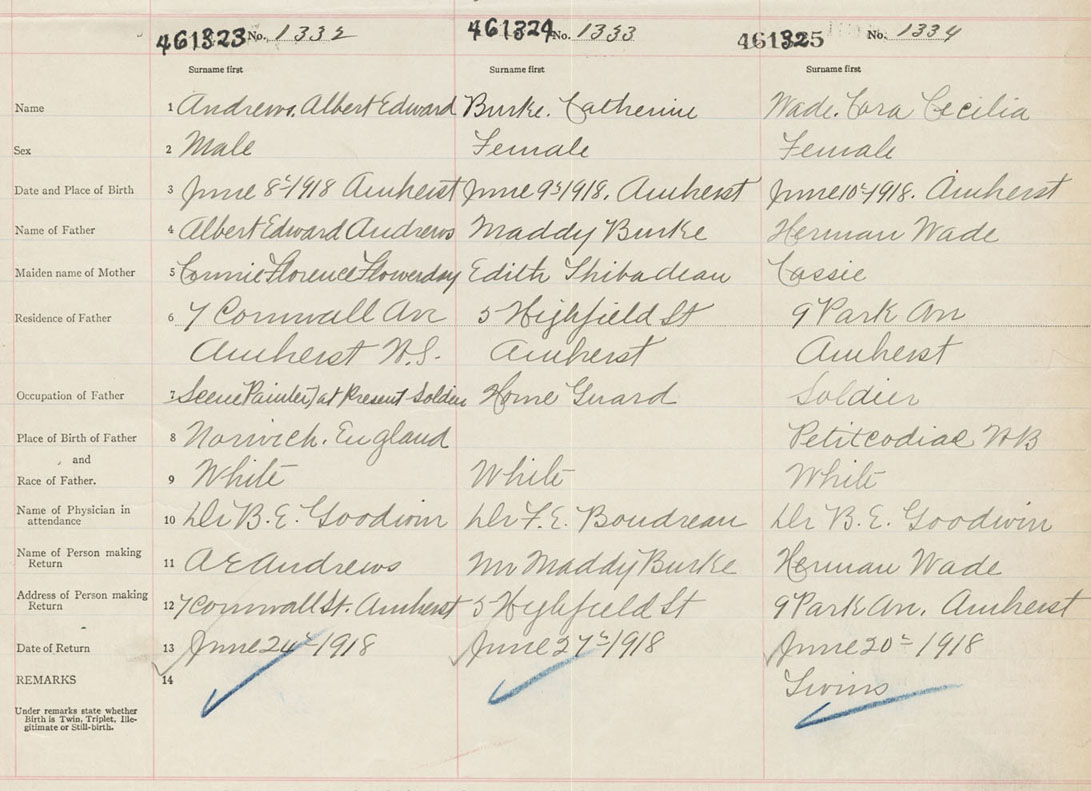 461323 No. 1332 461324 No. 1333 461325 No. 1334
Surname first Surname first Surname first
Name 1 Andrews. Albert Edward Burke. Catherine Wade. Cora Cecilia
Sex 2 Male Female Female
Date and Place of Birth 3 June 8th 1918 Amherst June 9th 1918. Amherst June 10th 1918. Amherst
Name of Father 4 Albert Edward Andrews Maddy Burke Herman Wade
Maiden name of Mother 5 Connie Florence Flowerday Edith Thibadeau Cassie
Residence of Father 6 7 Cornwall Ave 5 Highfield St 9 Park Av
Amherst N.S. Amherst Amherst
Occupation of Father 7 Scene Painter) at Present Soldier Home Guard Soldier
Place of Birth of Father 8 Norwich. England Petitcodiac NB
and
Race of Father. 9 White White White
Name of Physician in
attendance 10 Dr B. E. Goodwin Dr F. E. Boudreau Dr B. E. Goodwin
Name of Person making
Return 11 A E Andrews Mr Maddy Burke Herman Wade
Address of Person making
Return 12 7 Cornwall St. Amherst 5 Highfield St 9 Park Av. Amherst
Date of Return 13 June 24th 1918 June 27th 1918 June 20th 1918
REMARKS 14 Twins
Under remarks state whether
Birth is Twin, Triplet, Ille-
gitimate or Still-birth.